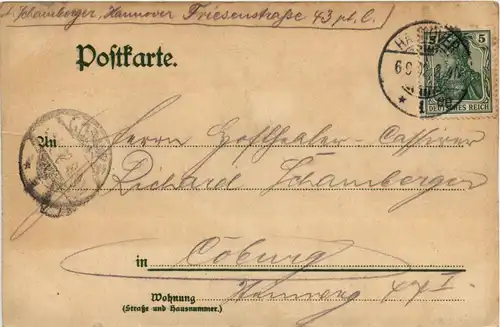 A. Schamberger, Hannover Friesenstraße 43 pt. l.
Postkarte.
HANNOVER
6 9
5
DEUTSCHES REICH
An Herrn Hoftheater-Cassirer
Richard Schamberger
in Coburg
Wohnung
(Straße und Hausnummer.)